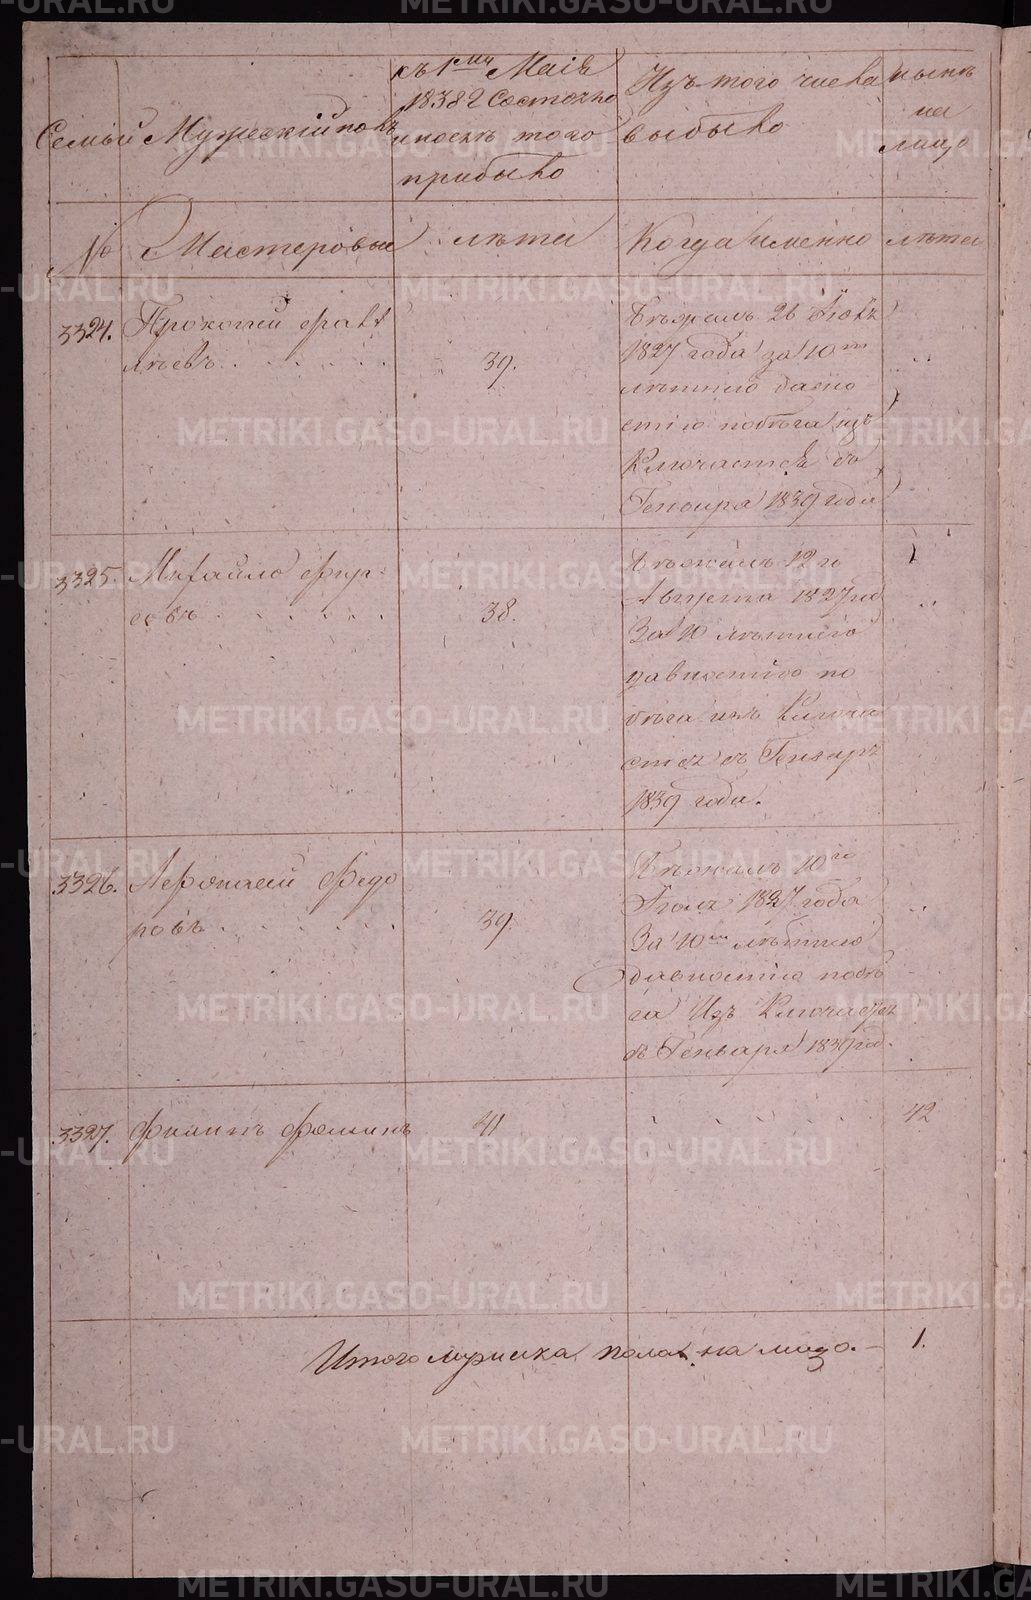 Семьи
Мужескій полъ
къ 1му Маія
1838 г Состояло
и послѣ того
прибыло
Изъ того числа
выбыло
нынѣ
на
лицо
№
Мастеровые
лѣта
Когда именно
лѣта
3324.
Прокопей
39.
Бѣжалъ 26
1827 года за 10ти
лѣтнею давно
стію побѣга изъ
Ключается съ
Генваря 1839 года
3325.
Михайло Фир
совъ
38.
Бѣжалъ 12го
Августа 1827 го
За 10 лѣтнею
давностію по
бѣга изъ Ключа
ется съ Генваря
1839 года.
3326.
Федо
ровъ
39.
Бѣжалъ 10го
Іюля 1827 года
За 10ти лѣтнею
давностію побѣ
га Изъ Ключается
съ Генваря 1839 год.
3327.
Филипъ Фоминъ
41
42
Итого мужска пола на лицо. —
1.
METRIKI.GASO-URAL.RU